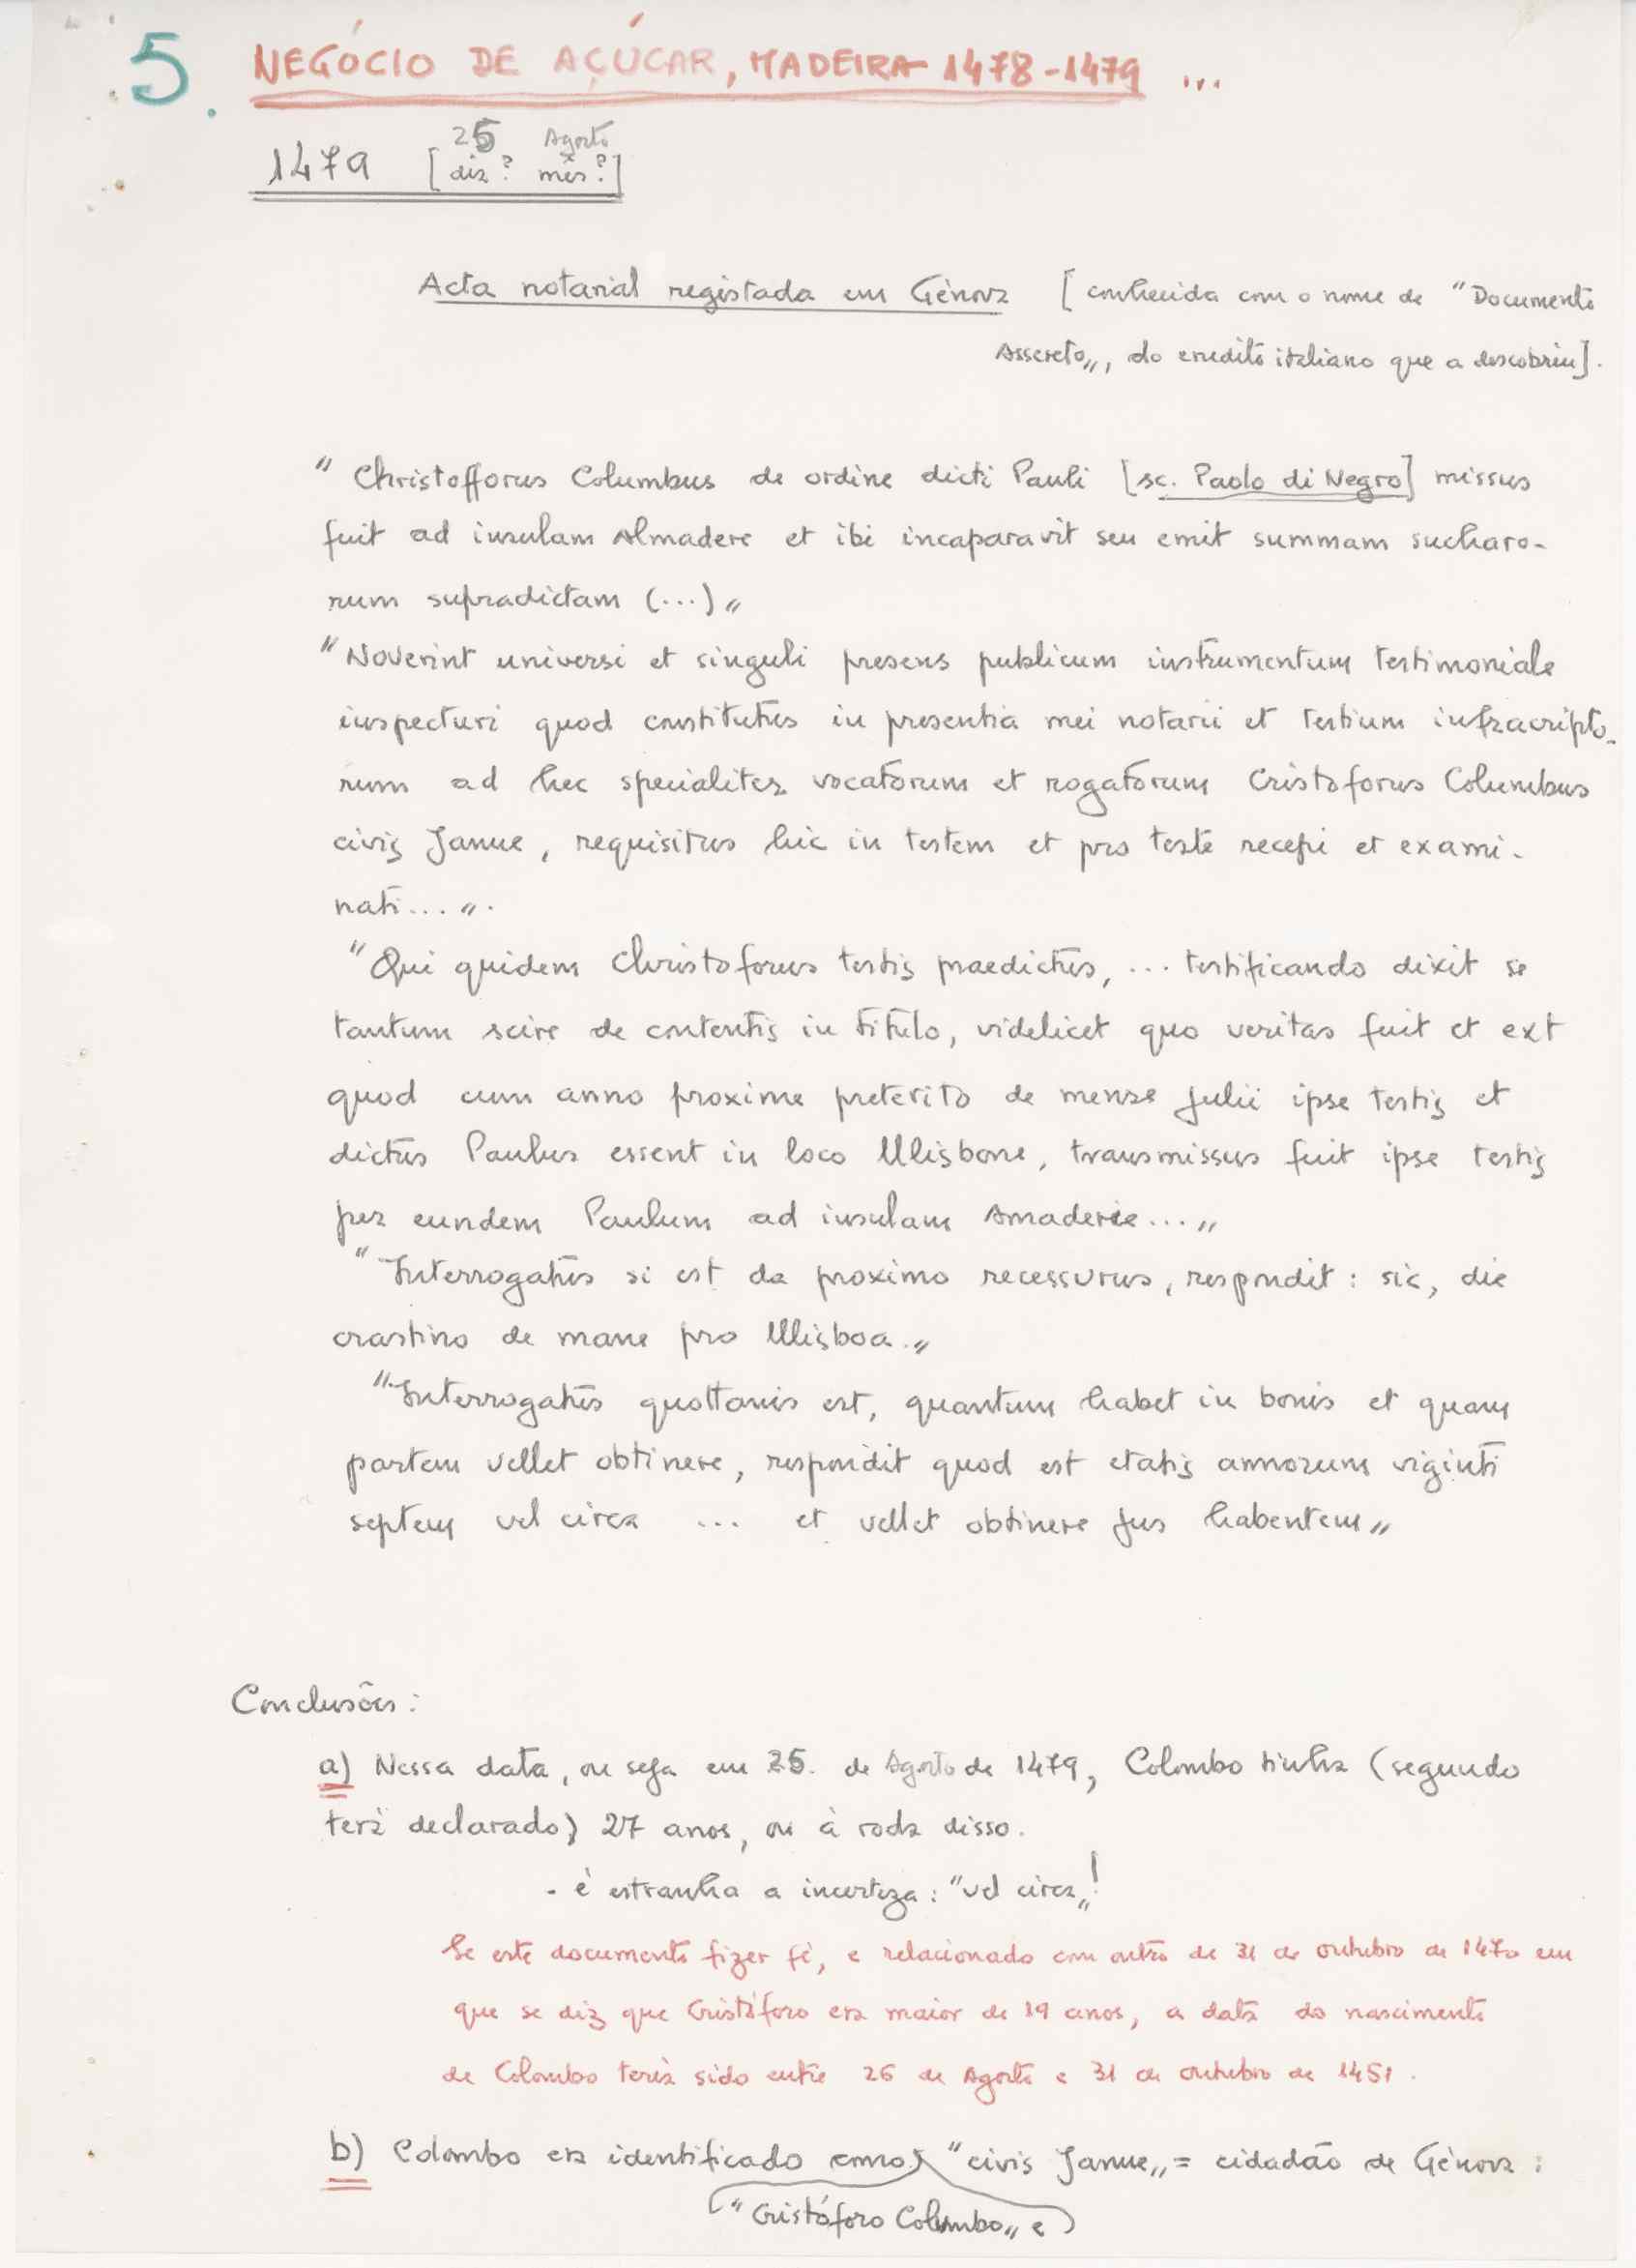 5. NEGÓCIO DE AÇÚCAR, MADEIRA 1478-1479 ...
25 Agosto
1479 [dia? mês?]
Acta notarial registada em Génova [conhecida com o nome de "Documento
Assereto", do erudito italiano que a descobriu].
"Christofforus Columbus de ordine dicti Pauli [sc. Paolo di Negro] missus
fuit ad insulam Almadere et ibi incaparavit seu emit summam sucharo-
rum supradictam (...)"
"Noverint universi et singuli presens publicum instrumentum testimoniale
inspecturi quod constitutus in presentia mei notarii et testium infrascripto-
rum ad hec specialiter vocatorum et rogatorum Cristoforus Columbus
civis Janue, requisitus hic in testem et pro teste recepi et exami-
nati...".
"Qui quidem Christoforus testis praedictus, ... testificando dixit se
tantum scire de contentis in titulo, videlicet quo veritas fuit et ext
quod cum anno proxime preterito de mense Julii ipse testis et
dictus Paulus essent in loco Ulisbone, transmissus fuit ipse testis
per eundem Paulum ad insulam Amaderie..."
"Interrogatus si est de proximo recessurus, respondit: sic, die
crastino de mane pro Ulisboa."
"Interrogatus quottanis est, quantum habet in bonis et quam
partem vellet obtinere, respondit quod est etatis annorum viginti
septem vel circa ... et vellet obtinere jus habentem"
Conclusões:
a) Nessa data, ou seja em 25. de Agosto de 1479, Colombo tinha (segundo
terá declarado) 27 anos, ou à roda disso.
- é estranha a incerteza: "vel circa"!
Se este documento fizer fé, e relacionado com outro de 31 de outubro de 1470 em
que se diz que Cristóforo era maior de 19 anos, a data do nascimento
de Colombo teria sido entre 26 de Agosto e 31 de outubro de 1451.
b) Colombo era identificado como "civis Janue" = cidadão de Génova:
("Cristóforo Columbo" e)